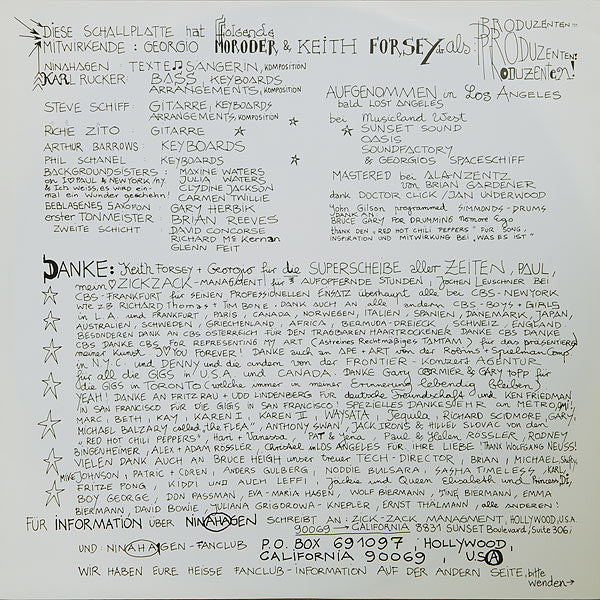 DIESE SCHALLPLATTE hat folgende
MITWIRKENDE: GEORGIO MORODER & KEITH FORSEY als: PRODUZENTEN
PRODUZENTEN!
PRODUZENTEN!
NINAHAGEN: TEXTE SÄNGERIN, KOMPOSITION
KARL RUCKER: BASS, KEYBOARDS
ARRANGEMENTS, KOMPOSITION
STEVE SCHIFF: GITARRE, KEYBOARDS
ARRANGEMENTS, KOMPOSITION
RICHIE ZITO: GITARRE
ARTHUR BARROWS: KEYBOARDS
PHIL SCHANEL: KEYBOARDS
BACKGROUNDSISTERS: MAXINE WATERS
on I♡PAUL & NEWYORK/NY. JULIA WATERS
& Ich weiss, es wird ein- CLYDINE JACKSON
mal ein Wunder geschehn! CARMEN TWILLIE
BEBLASENES SAXOFON: GARY HERBIK
erster TONMEISTER: BRIAN REEVES
ZWEITE SCHICHT: DAVID CONCORSE
RICHARD McKernan
GLENN FEIT
AUFGENOMMEN in Los ANGELES
bald LOST ANGELES
bei Musicland West
SUNSET SOUND
OASIS
SOUNDFACTORY
& GEORGIOS SPACESCHIFF
MASTERED bei ALLANZENTZ
von BRIAN GARDENER
dank DOCTOR CLICK / JAN UNDERWOOD
John Gilson programmed SIMMONDS-DRUMS
DANK AN
BRUCE GARY FOR DRUMMING nomore Ego
thank DEN "RED HOT CHILI PEPPERS" FÜR SONG,
INSPIRATION UND MITWIRKUNG BEI "WAS ES IST"
DANKE: Keith Forsey + Georgio für die SUPERSCHEIBE aller ZEITEN, PAUL,
mein ZICKZACK-MANAGMENT für AUFOPFERNDE STUNDEN, JOCHEN LEUSCHNER BEI
CBS-FRANKFURT für SEINEN PROFESSIONELLEN EINSATZ überhaupt alle bei CBS-NEWYORK
wie z.B. RICHARD Thomas + TIM BONE. DANK AUCH AN alle andern CBS-BOYS + GIRLS
in L.A. und FRANKFURT, PARIS, CANADA, NORWEGEN, ITALIEN, SPANIEN, DÄNEMARK, JAPAN,
AUSTRALIEN, SCHWEDEN, GRIECHENLAND, AFRICA, BERMUDA-DREIECK, SCHWEIZ, ENGLAND.
BESONDEREN DANK AN CBS ÖSTERREICH FÜR DEN TRAGBAREN HAARTROCKENER DANKE CBS DANKE!
CBS DANKE CBS FOR REPRESENTING MY ART (Astreines Rechtmäßiges TAMTAM) für das präsentieren
meiner Kunst. I♡YOU FOREVER! DANKE auch an APE + ART von der Robins + Spielman Comp.
in N.Y.C. und DENNY und die andern von der FRONTIER-KONZERT AGENTUR
für all die GIGS in USA und CANADA. DANKE Gary CORMIER & GARY TOPP für
die GIGS in TORONTO (welche immer in meiner Erinnerung lebendig bleiben)
YEAH! DANKE AN FRITZ RAU + UDO LINDENBERG FÜR deutsche Freundschaft und KEN FRIEDMAN
IN SAN FRANCISCO FÜR DIE GIGS IN SAN FRANCISCO! SPEZIELLES DANKESEHR an METRO,
MARC, BETH, KAY, KAREN I, KAREN II, WAYSATA, Tequila, RICHARD SCIDMORE, GARY,
MICHAEL BALZARY called: the FLEA", ANTHONY SWAN, JACK IRONS & HILLEL SLOVAC von den
"RED HOT CHILI PEPPERS", Hari + Vanessa, PAT & Jena Paul & Helen ROSSLER, RODNEY
BINGENHEIMER, ALEX + ADAM ROSSLER Christel in LOS ANGELES FÜR IHRE LIEBE! THANK WOLFGANG NEUSS!
VIELEN DANK AUCH AN BRUCE HEIGH unser treuer TECH-DIRECTOR, BRIAN, MICHAEL
MIKE JOHNSON, PATRIC + COREN, ANDERS GULBERG, NODDIE BULSARA, SASHA TIMELESS, KARL,
FRITZE PONG, KIDDI UND AUCH LEFFI, Jackie und Queen Elisabeth und Princess DI,
BOY GEORGE, DON PASSMAN, EVA-MARIA HAGEN, WOLF BIERMANN, TINE BIERMANN, EMMA
BIERMANN, DAVID BOWIE, JULIANA GRIGOROWA-KNEPLER, ERNST THÄLMANN, alle anderen!
FÜR INFORMATION ÜBER NINAHAGEN SCHREIBT AN: ZICK-ZACK MANAGMENT, HOLLYWOOD, U.S.A.
90069 → CALIFORNIA 8831 SUNSET Boulevard/Suite 306,
UND: NINAHAGEN-FANCLUB P.O. BOX 691097, HOLLYWOOD,
CALIFORNIA 90069, USA
WIR HABEN EURE HEISSE FANCLUB-INFORMATION AUF DER ANDERN SEITE, bitte
wenden→